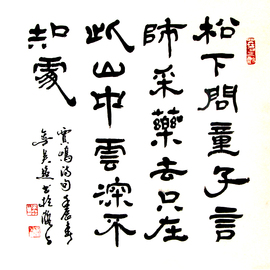 松下問童子言
師采藥去只在
此山中雲深不
知處
賈島詩句